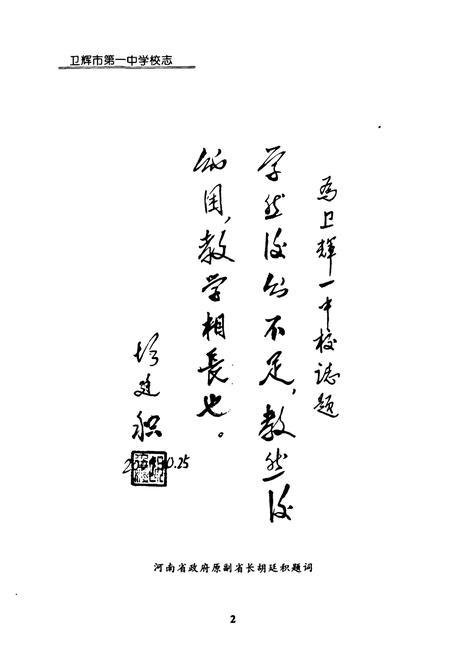 卫辉市第一中学校志
为卫辉一中校誌题
学然後知不足，教然後
知困，教学相長也。
胡廷积
河南省政府原副省长胡廷积题词
2